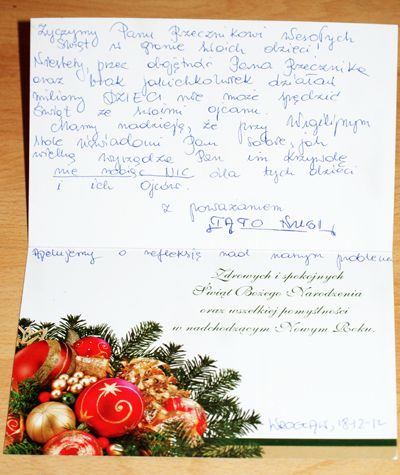 Życzymy Panu Rzecznikowi Wesołych
Świąt w gronie swoich dzieci!
Niestety, przez obojętność Pana Rzecznika
oraz brak jakichkolwiek działań
miliony DZIECI nie może spędzić
Świąt ze swoimi ojcami.
Mamy nadzieję, że przy Wigilijnym
stole uświadomi Pan sobie, jak
wielką wyrządza Pan im krzywdę
nie robiąc NIC dla tych dzieci
i ich Ojców.
z poważaniem
Apelujemy o refleksję nad naszym problemem
Zdrowych i spokojnych
Świąt Bożego Narodzenia
oraz wszelkiej pomyślności
w nadchodzącym Nowym Roku.
Wrocław, 18-12-12